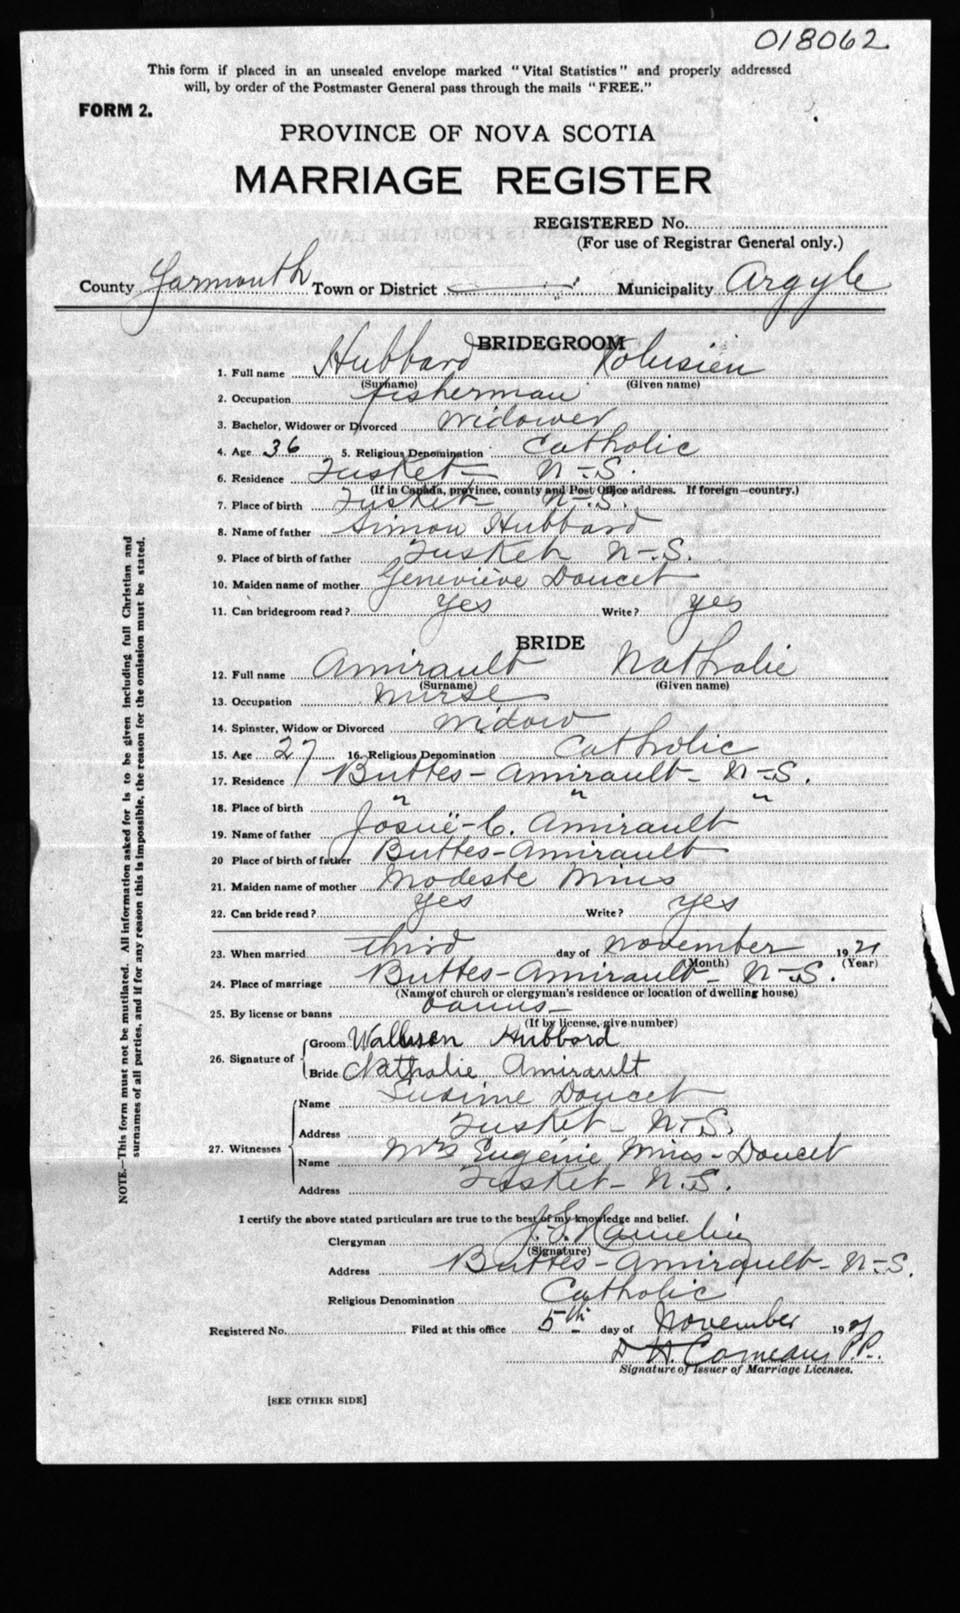 018062
This form if placed in an unsealed envelope marked "Vital Statistics" and properly addressed
will, by order of the Postmaster General pass through the mails "FREE."
FORM 2.
PROVINCE OF NOVA SCOTIA
MARRIAGE REGISTER
REGISTERED No.
(For use of Registrar General only.)
County Yarmouth Town or District Municipality Argyle
BRIDEGROOM
1. Full name Hubbard
(Surname) (Given name)
2. Occupation fisherman
3. Bachelor, Widower or Divorced widower
4. Age 36 5. Religious Denomination Catholic
6. Residence Tusket - N-S.
(If in Canada, province, county and Post Office address. If foreign—country.)
7. Place of birth Tusket - N-S.
8. Name of father Simon Hubbard
9. Place of birth of father Tusket N-S.
10. Maiden name of mother Geneviève Doucet
11. Can bridegroom read? Yes Write? yes
BRIDE
12. Full name Amirault Nathalie
(Surname) (Given name)
13. Occupation nurse
14. Spinster, Widow or Divorced widow
15. Age 27 16. Religious Denomination Catholic
17. Residence Buttes-Amirault- N-S.
18. Place of birth " " "
19. Name of father Josué-C. Amirault
20 Place of birth of father Buttes-Amirault
21. Maiden name of mother Modeste Mius
22. Can bride read? yes Write? yes
23. When married third day of november 19
(Month) (Year)
24. Place of marriage Buttes-Amirault- N-S.
(Name of church or clergyman's residence or location of dwelling house)
25. By license or banns banns-
(If by license, give number)
26. Signature of
Groom Hubbard
Bride Nathalie Amirault
27. Witnesses
Name Doucet
Address Tusket- N-S.
Name Mrs Eugénie Mius-Doucet
Address Tusket- N.S.
I certify the above stated particulars are true to the best of my knowledge and belief.
Clergyman
(Signature)
Address Buttes-Amirault- N-S.
Religious Denomination Catholic
Registered No. Filed at this office 5th day of November 19
D H. Comeau P.P.
Signature of Issuer of Marriage Licenses.
[SEE OTHER SIDE]
NOTE.—This form must not be mutilated. All information asked for is to be given including full Christian and
surnames of all parties, and if for any reason this is impossible, the reason for the omission must be stated.